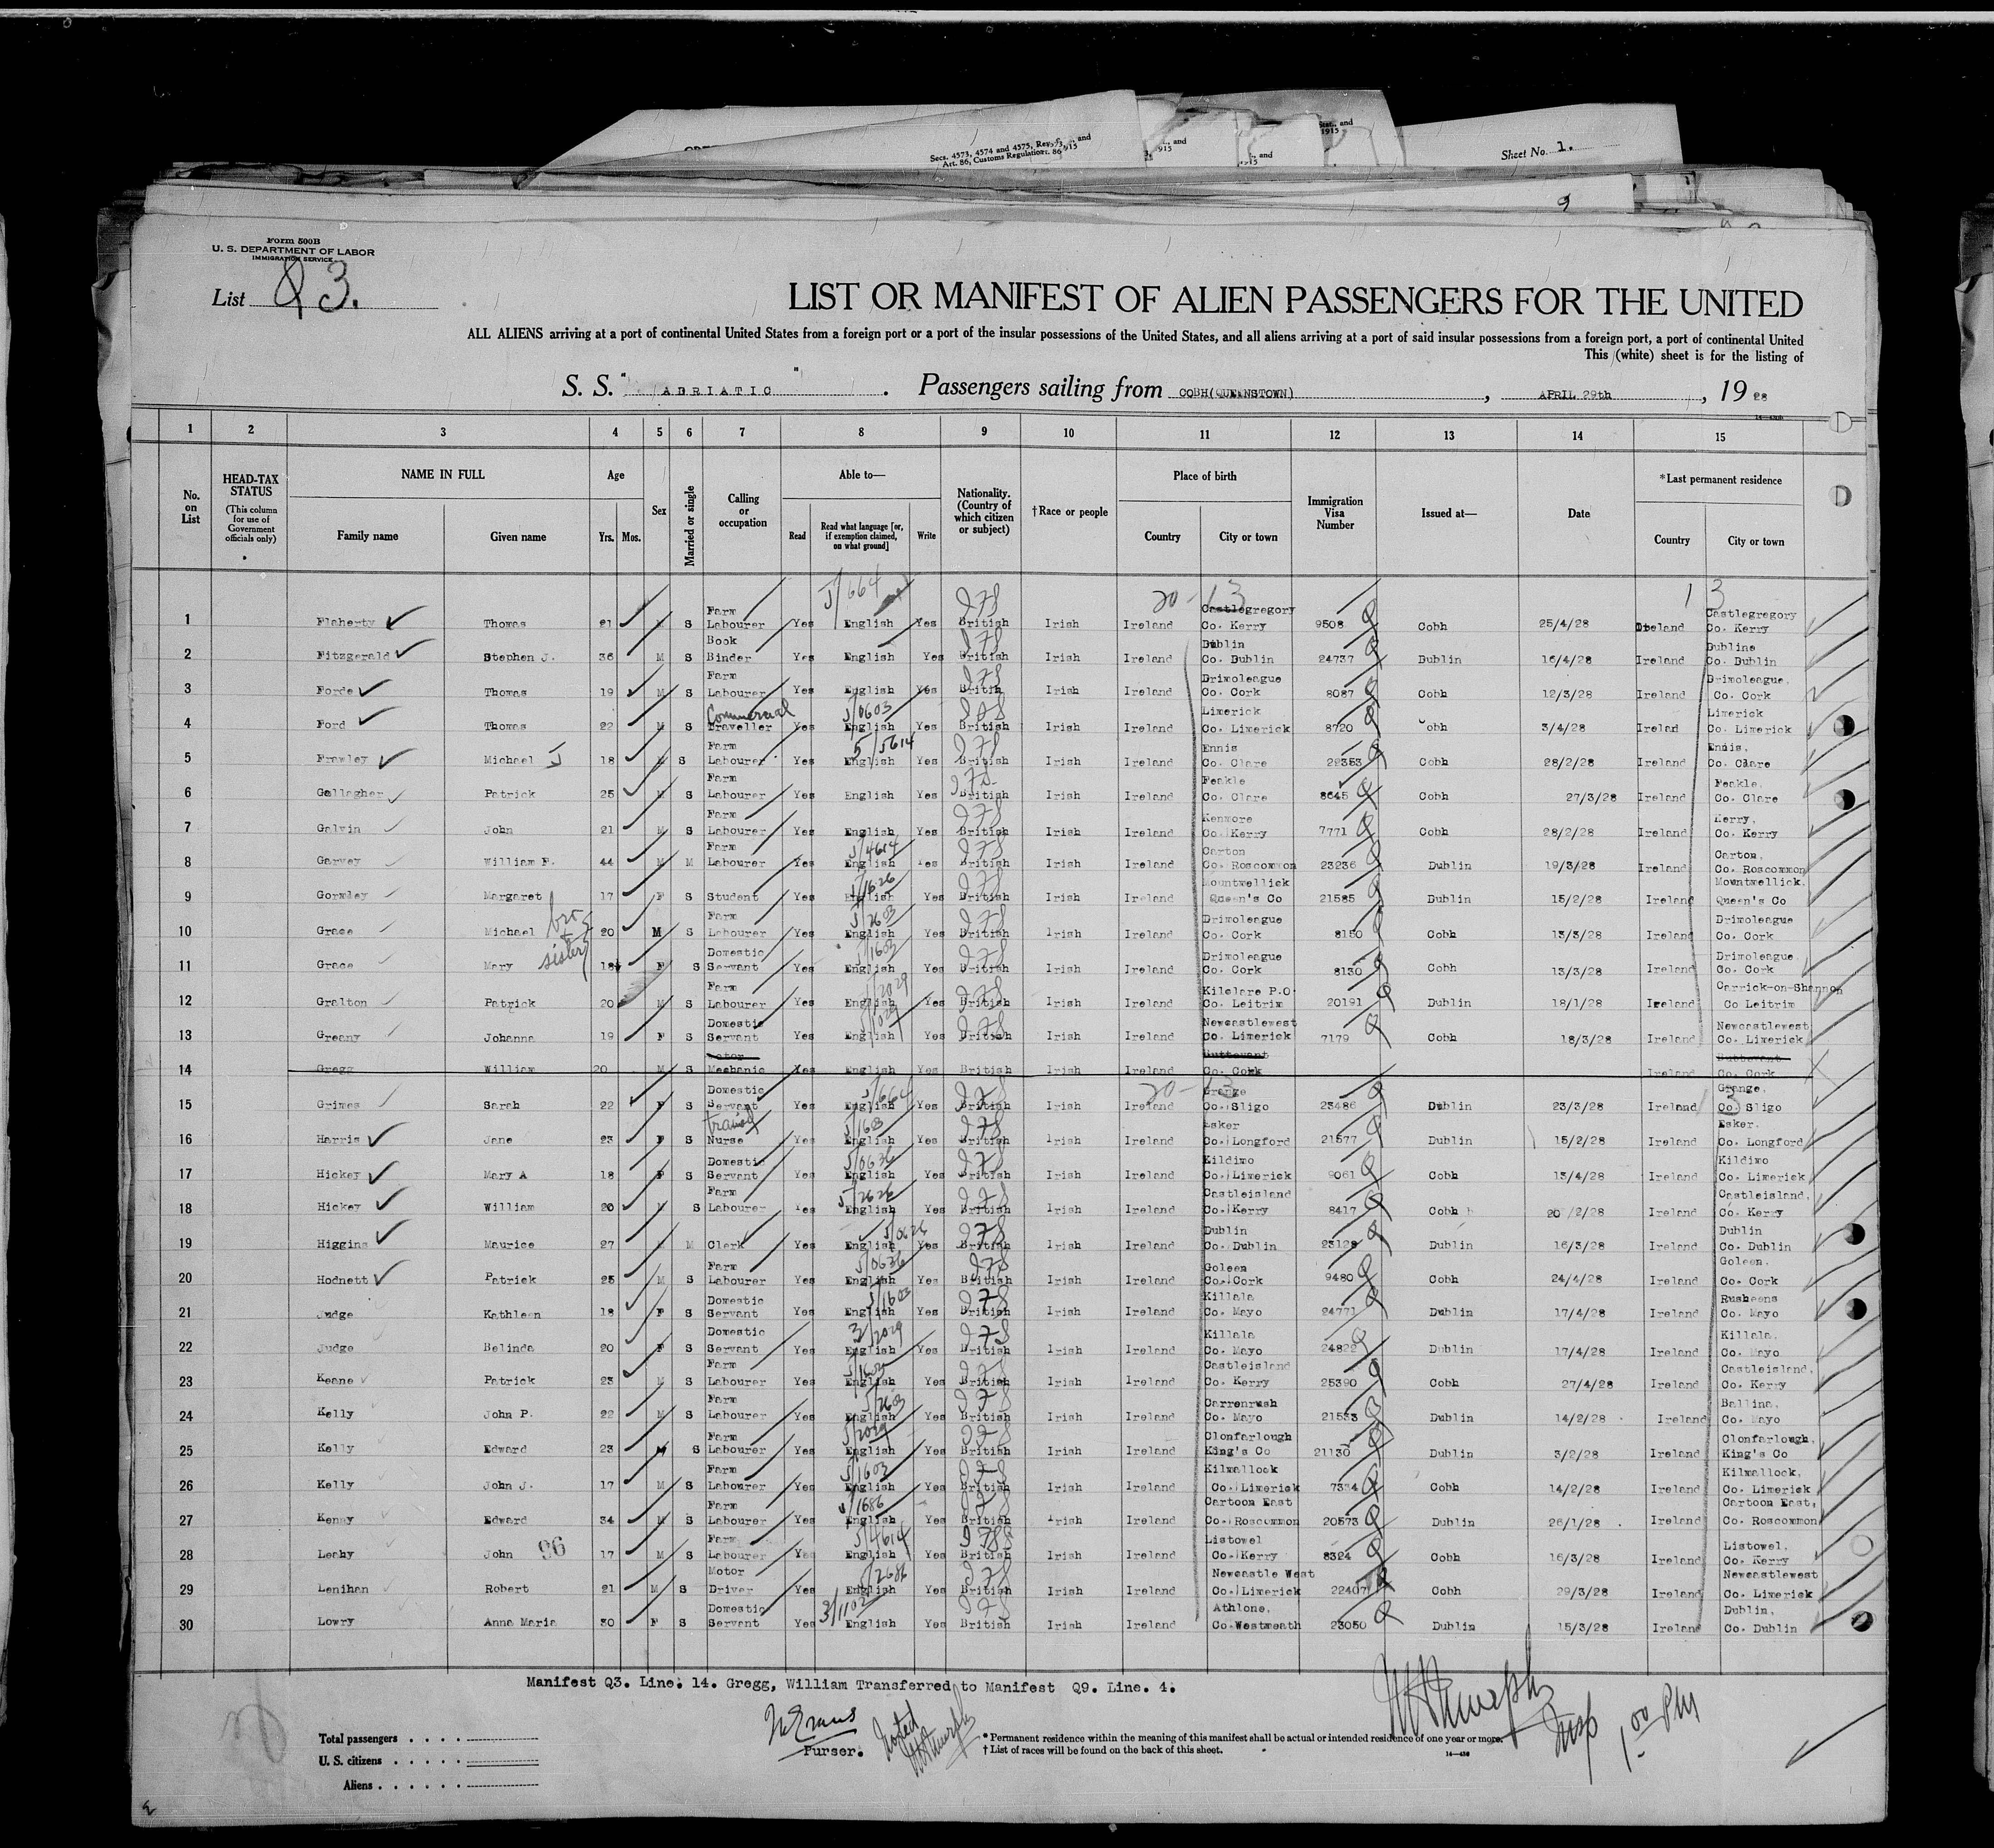 Secs. 4573, 4574 and 4575, Rev. and
Art. 86, Customs Regulations. 1915
Sheet No. 1.
9
Form 500B
U. S. DEPARTMENT OF LABOR
IMMIGRATION SERVICE
List Q3.
LIST OR MANIFEST OF ALIEN PASSENGERS FOR THE UNITED
ALL ALIENS arriving at a port of continental United States from a foreign port or a port of the insular possessions of the United States, and all aliens arriving at a port of said insular possessions from a foreign port, a port of continental United
This (white) sheet is for the listing of
S. S. "ADRIATIC". Passengers sailing from COBH(QUEENSTOWN), APRIL 29th, 1928
1 2 3 4 5 6 7 8 9 10 11 12 13 14 15
No. on List
HEAD-TAX STATUS (This column for use of Government officials only)
NAME IN FULL Family name Given name
Age Yrs. Mos.
Sex
Married or single
Calling or occupation
Able to— Read Read what language [or, if exemption claimed, on what ground] Write
Nationality. (Country of which citizen or subject)
†Race or people
Place of birth Country City or town
Immigration Visa Number
Issued at—
Date
*Last permanent residence Country City or town
1 Flaherty Thomas 21 M S Farm Labourer Yes English Yes British Irish Ireland Castlegregory Co. Kerry 9508 Cobh 25/4/28 Ireland Castlegregory Co. Kerry
2 Fitzgerald Stephen J. 36 M S Book Binder Yes English Yes British Irish Ireland Dublin Co. Dublin 24737 Dublin 16/4/28 Ireland Dubline Co. Dublin
3 Forde Thomas 19 M S Farm Labourer Yes English Yes Britih Irish Ireland Drimoleague Co. Cork 8087 Cobh 12/3/28 Ireland Drimoleague, Co. Cork
4 Ford Thomas 22 M S Commercial Traveller Yes English Yes British Irish Ireland Limerick Co. Limerick 8720 Cobh 3/4/28 Irelad Limerick Co. Limerick
5 Frawley Michael J 18 M S Farm Labourer Yes English Yes British Irish Ireland Ennis Co. Clare 22353 Cobh 28/2/28 Ireland Ennis, Co. Clare
6 Gallagher Patrick 25 M S Farm Labourer Yes English Yes British Irish Ireland Feakle Co. Clare 8645 Cobh 27/3/28 Ireland Feakle, Co. Clare
7 Galvin John 21 M S Farm Labourer Yes English Yes British Irish Ireland Kenmore Co. Kerry 7771 Cobh 28/2/28 Ireland Kerry, Co. Kerry
8 Garvey William P. 44 M M Farm Labourer Yes English Yes British Irish Ireland Carton Co. Roscommon 23236 Dublin 19/3/28 Ireland Carton, Co. Roscommon
9 Gormley Margaret 17 F S Student Yes English Yes British Irish Ireland Mountmellick Queen's Co 21585 Dublin 15/2/28 Ireland Mountmellick, Queen's Co
10 Grace Michael bro 20 M S Farm Labourer Yes English Yes British Irish Ireland Drimoleague Co. Cork 8150 Cobh 13/3/28 Ireland Drimoleague Co. Cork
11 Grace Mary sister 18 F S Domestic Servant Yes English Yes British Irish Ireland Drimoleague Co. Cork 8130 Cobh 13/3/28 Ireland Drimoleague Co. Cork
12 Gralton Patrick 20 M S Farm Labourer Yes English Yes British Irish Ireland Kilclare P.O. Co. Leitrim 20191 Dublin 18/1/28 Ireland Carrick-on-Shannon Co Leitrim
13 Greany Johanna 19 F S Domestic Servant Yes English Yes British Irish Ireland Newcastlewest Co. Limerick 7179 Cobh 18/3/28 Ireland Newcastlewest Co. Limerick
14 Gregg William 20 M S Motor Mechanic Yes English Yes British Irish Ireland Buttevant Co. Cork Ireland Buttevant Co. Cork
15 Grimes Sarah 22 F S Domestic Servant Yes English Yes British Irish Ireland Grange Co. Sligo 23486 Dublin 23/3/28 Ireland Grange, Co. Sligo
16 Harris Jane 23 F S trained Nurse Yes English Yes British Irish Ireland Esker Co. Longford 21577 Dublin 15/2/28 Ireland Esker, Co. Longford
17 Hickey Mary A 18 F S Domestic Servant Yes English Yes British Irish Ireland Kildimo Co. Limerick 9061 Cobh 13/4/28 Ireland Kildimo Co. Limerick
18 Hickey William 20 M S Farm Labourer Yes English Yes British Irish Ireland Castleisland Co. Kerry 8417 Cobh 20/2/28 Ireland Castleisland, Co. Kerry
19 Higgins Maurice 27 M M Clerk Yes English Yes British Irish Ireland Dublin Co. Dublin 23129 Dublin 16/3/28 Ireland Dublin Co. Dublin
20 Hodnett Patrick 25 M S Farm Labourer Yes English Yes British Irish Ireland Goleen Co. Cork 9480 Cobh 24/4/28 Ireland Goleen, Co. Cork
21 Judge Kathleen 18 F S Domestic Servant Yes English Yes British Irish Ireland Killala Co. Mayo 24771 Dublin 17/4/28 Ireland Rusheens Co. Mayo
22 Judge Belinda 20 F S Domestic Servant Yes English Yes British Irish Ireland Killala Co. Mayo 24822 Dublin 17/4/28 Ireland Killala, Co. Mayo
23 Keane Patrick 23 M S Farm Labourer Yes English Yes British Irish Ireland Castleisland Co. Kerry 25390 Cobh 27/4/28 Ireland Castleisland, Co. Kerry
24 Kelly John P. 22 M S Farm Labourer Yes English Yes British Irish Ireland Carrenrush Co. Mayo 21533 Dublin 14/2/28 Ireland Ballina, Co. Mayo
25 Kelly Edward 23 M S Farm Labourer Yes English Yes British Irish Ireland Clonfarlough King's Co 21130 Dublin 3/2/28 Ireland Clonfarlough, King's Co
26 Kelly John J. 17 M S Farm Labourer Yes English Yes British Irish Ireland Kilmallock Co. Limerick 7334 Cobh 14/2/28 Ireland Kilmallock, Co. Limerick
27 Kenny Edward 34 M S Farm Labourer Yes English Yes British Irish Ireland Cartoon East Co. Roscommon 20573 Dublin 26/1/28 Ireland Cartoon East, Co. Roscommon
28 Leahy John 96 17 M S Farm Labourer Yes English Yes British Irish Ireland Listowel Co. Kerry 8324 Cobh 16/3/28 Ireland Listowel, Co. Kerry
29 Lenihan Robert 21 M S Motor Driver Yes English Yes British Irish Ireland Newcastle West Co. Limerick 22407 Cobh 29/3/28 Ireland Newcastlewest Co. Limerick
30 Lowry Anna Maria 30 F S Domestic Servant Yes English Yes British Irish Ireland Athlone, Co. Westmeath 23050 Dublin 15/3/28 Ireland Dublin, Co. Dublin
Manifest Q3. Line. 14. Gregg, William Transferred to Manifest Q9. Line. 4.
Purser.
Noted
Total passengers
U. S. citizens
Aliens
* Permanent residence within the meaning of this manifest shall be actual or intended residence of one year or more.
† List of races will be found on the back of this sheet.
Insp